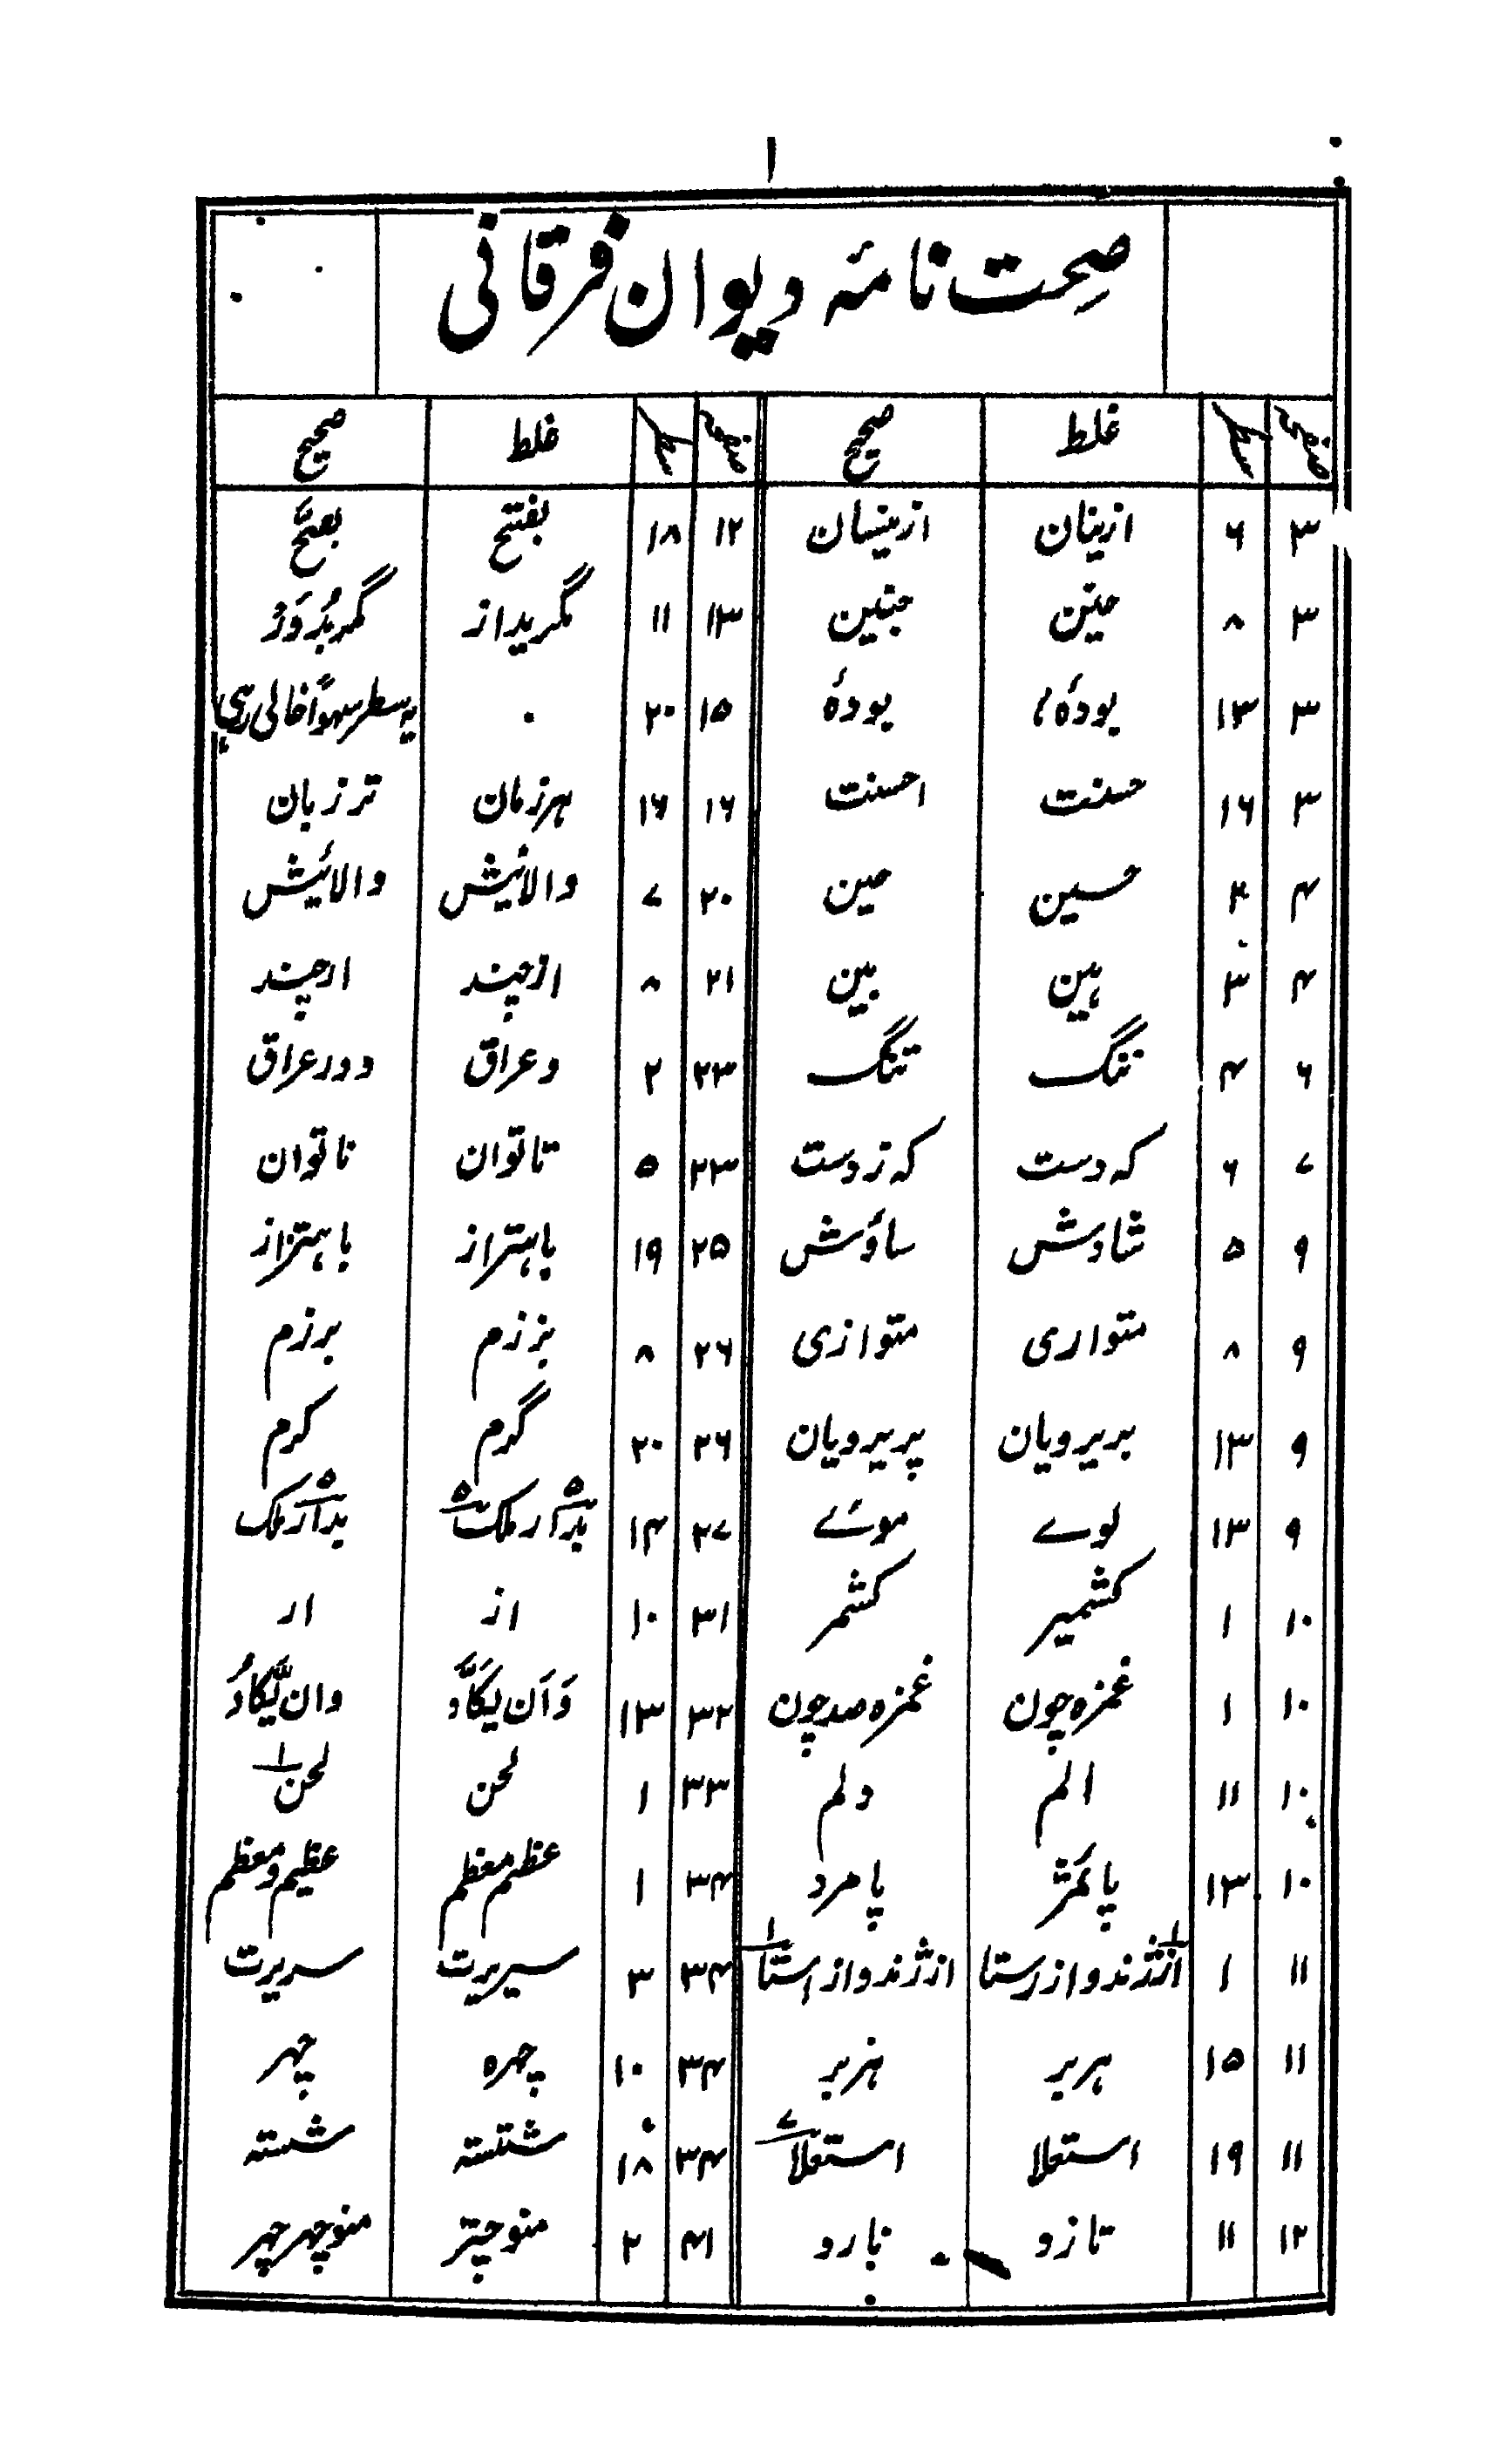 ۱
صحت نامۂ دیوان فرقانی
صفحہ سطر غلط صحیح صفحہ سطر غلط صحیح
۳ ۶ ازینان ازینسان ۱۲ ۱۸ بفتح
۳ ۸ جنین ۱۳ ۱۱ مگریداز
۳ ۱۳ بودۂ بودۂ ۱۵ ۲۰ ۰ یہ سطر سہواً خالی رہی
۳ ۱۶ حسنت احسنت ۱۶ ۱۶ ہرزمان تر زبان
۴ ۴ حسین حین ۲۰ ۷ والانیش والائیش
۴ ۳ ہین بین ۲۱ ۸ ازچند ارچند
۶ ۴ ننگ تنگ ۲۳ ۲ و عراق و در عراق
۷ ۶ کہ دست کہ زدست ۲۳ ۵ تاتوان ناتوان
۹ ۵ شاوش ساؤش ۲۵ ۱۹ باہتراز باہتزاز
۹ ۸ متواری متوازی ۲۶ ۸ بزرزم برزم
۹ ۱۳ بریرویان پریرویان ۲۶ ۲۰ گرم کرم
۹ ۱۳ لوے موئے ۲۷ ۱۴
۱۰ ۱ کشمیر کشمر ۳۱ ۱۰ از ار
۱۰ ۱ غمزہ چون غمزہ صد چون ۳۲ ۱۳ وَاَن لیَکَاَدّ وان یَّکادُ
۱۰ ۱۱ الم دلم ۳۳ ۱ لحن لحن ۱
۱۰ ۱۳ پامرد ۳۴ ۱ عظم معظم عظیم و معظم
۱۱ ۱ از ژند و از رستا از ژند و از استا ۱ ۳۴ ۳ سیریرت سریرت
۱۱ ۱۵ ہربر ہزبر ۳۴ ۱۰ چہرہ چہر
۱۱ ۱۹ استعلا استعلا ۷ ۳۴ ۱۸ شتستہ شستہ
۱۲ ۱۱ تازو نارو ۴۱ ۲ منوچتر منوچہر چہر